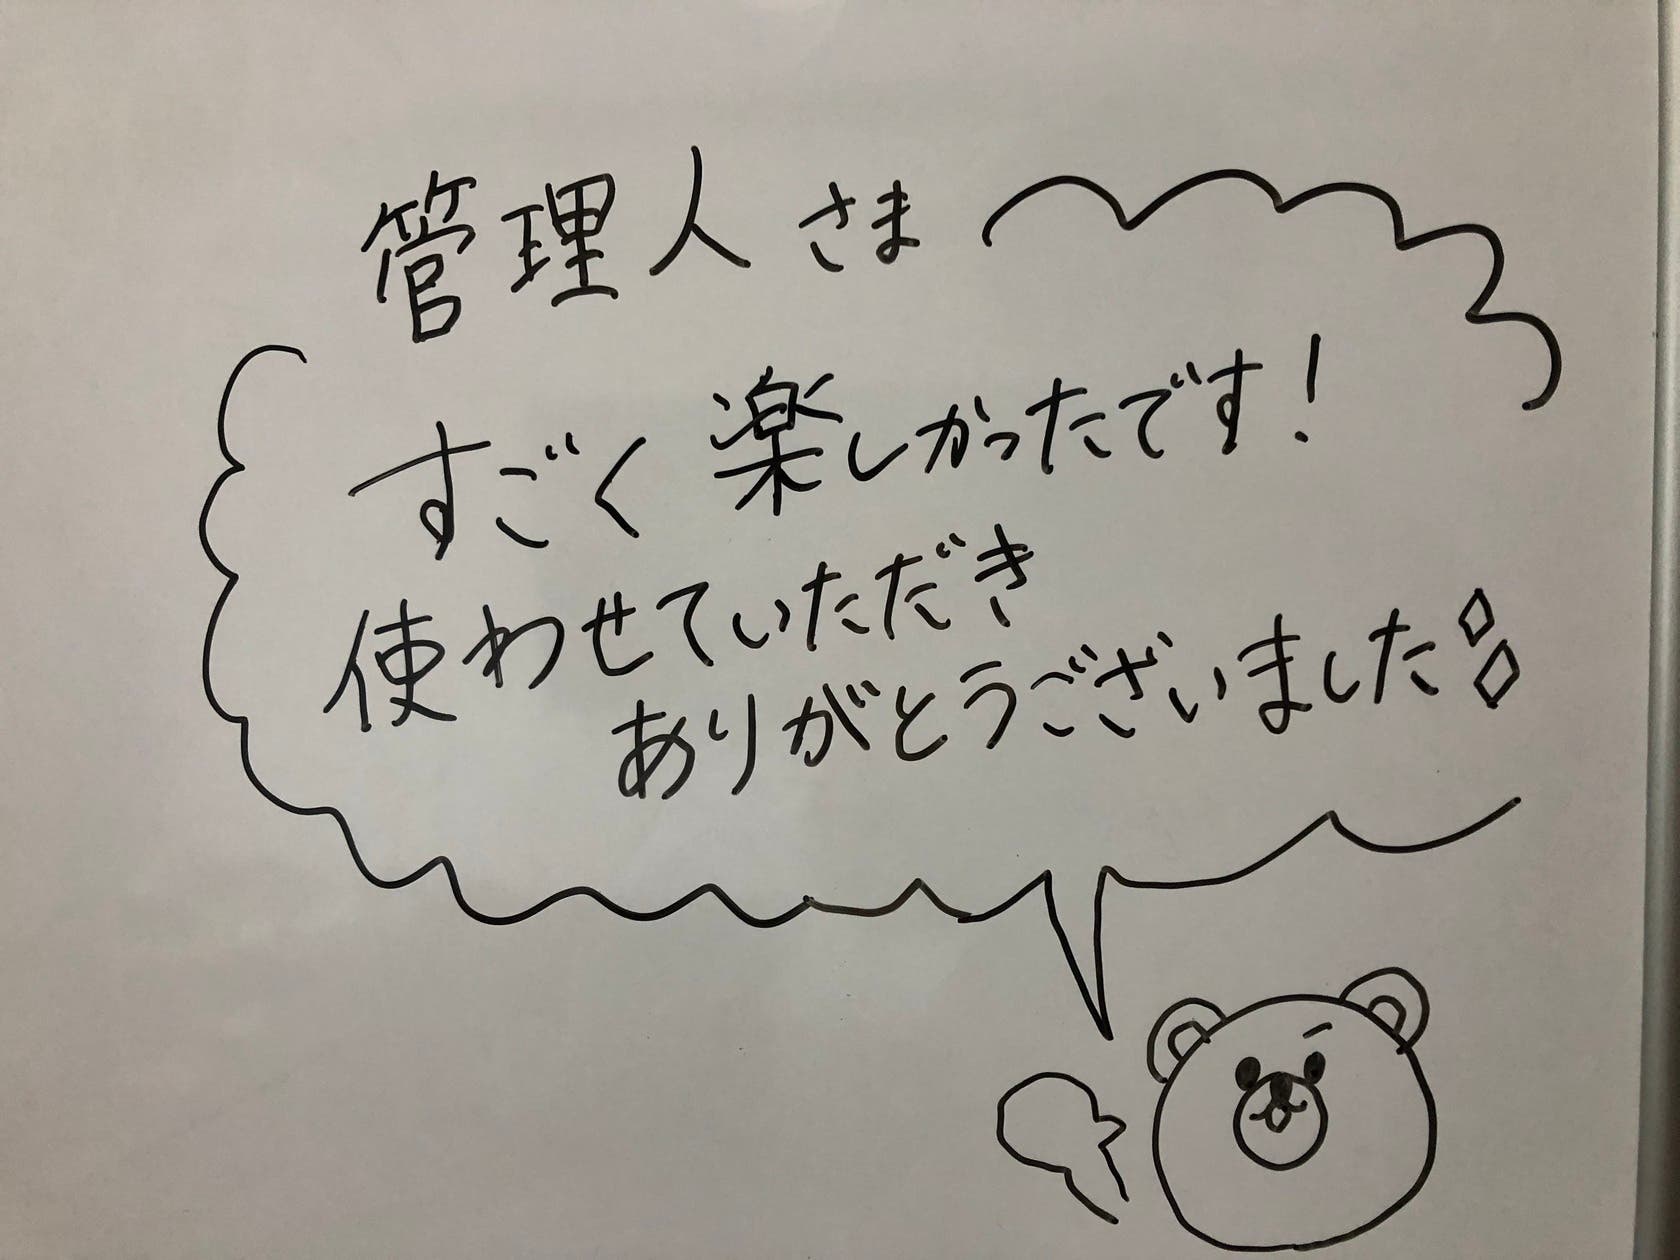 管理人さま
すごく楽しかったです！
使わせていただき
ありがとうございました